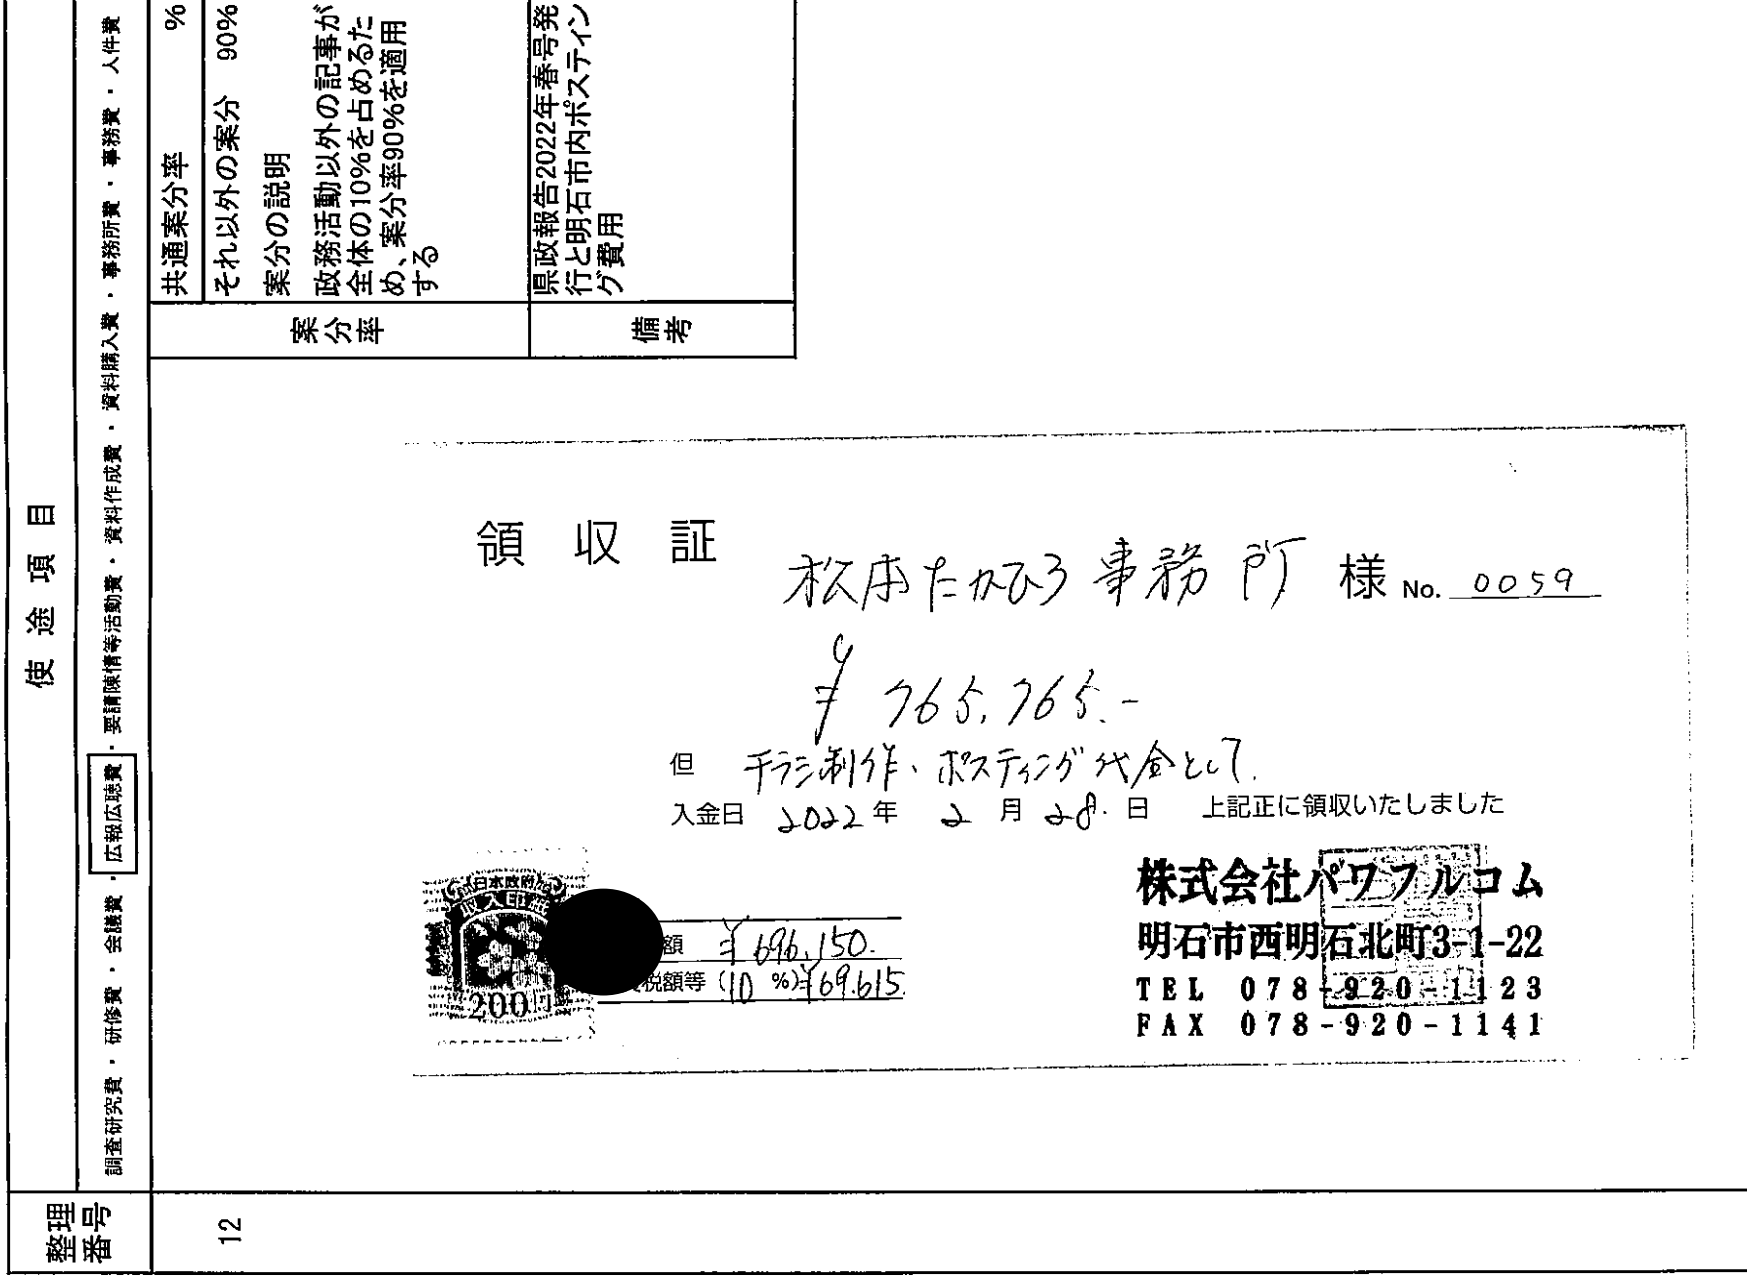 使途項目
調査研究費・研修費・会議費・広報広聴費・要請陳情等活動費・資料作成費・資料購入費・事務所費・事務費・人件費
整理
番号
12
案分率
共通案分率 %
それ以外の案分 90%
案分の説明
政務活動以外の記事が
全体の10%を占めるた
め、案分率90%を適用
する
備考
県政報告2022年春号発
行と明石市内ポスティン
グ費用
領収証
松本たかひろ事務所 様 No. 0059
¥765,765.-
但 チラシ制作・ポスティング代金として.
入金日 2022年 2月 28日 上記正に領収いたしました
日本政府
収入印紙
200円
額 ¥696,150.
税額等(10 %)¥69,615.
株式会社パワフルコム
明石市西明石北町3-1-22
TEL 078-920-1123
FAX 078-920-1141